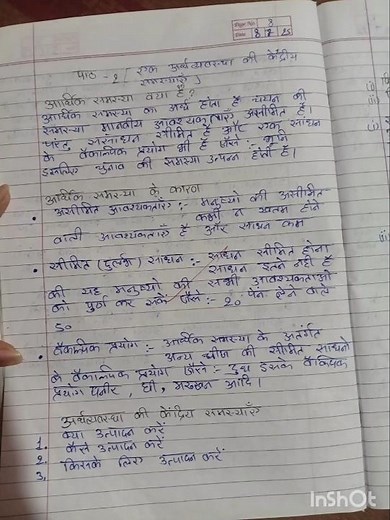 3
8 7 25
पाठ - 2 ( एक अर्थव्यवस्था की केंद्रीय
समस्याएँ )
आर्थिक समस्या क्या है ?
आर्थिक समस्या का अर्थ होता है चयन की
समस्या मानवीय आवश्यकताएँ असीमित है।
परंतु संसाधन सीमित है और एक साधन
के वैकल्पिक प्रयोग भी है जैसे:- भूमि
इसलिए चुनाव की समस्या उत्पन्न होती है।
आर्थिक समस्या के कारण
• असीमित आवश्यकताएँ :- मनुष्यो की असीमित
कभी न खतम होने
वाली आवश्यकताएँ है और साधन कम
• सीमित (दुर्लभ) साधन :- साधन सीमित होना
साधन इतने नही है
की वह मनुष्यो की सभी आवश्यकताओ
को पूर्ण कर सके जैसे :- 20 पेन लेने वाले
50
• वैकल्पिक प्रयोग :- आर्थिक समस्या के अंतर्गत
अन्य चीज की सीमित साधनो
के वैकल्पिक प्रयोग जैसे:- दूध इसके वैकल्पिक
प्रयोग पनीर, घी, मक्खन आदि।
अर्थव्यवस्था की केंद्रिय समस्याएँ
1. क्या उत्पादन करें
2. कैसे उत्पादन करें
3. किसके लिए उत्पादन करें
InShOt